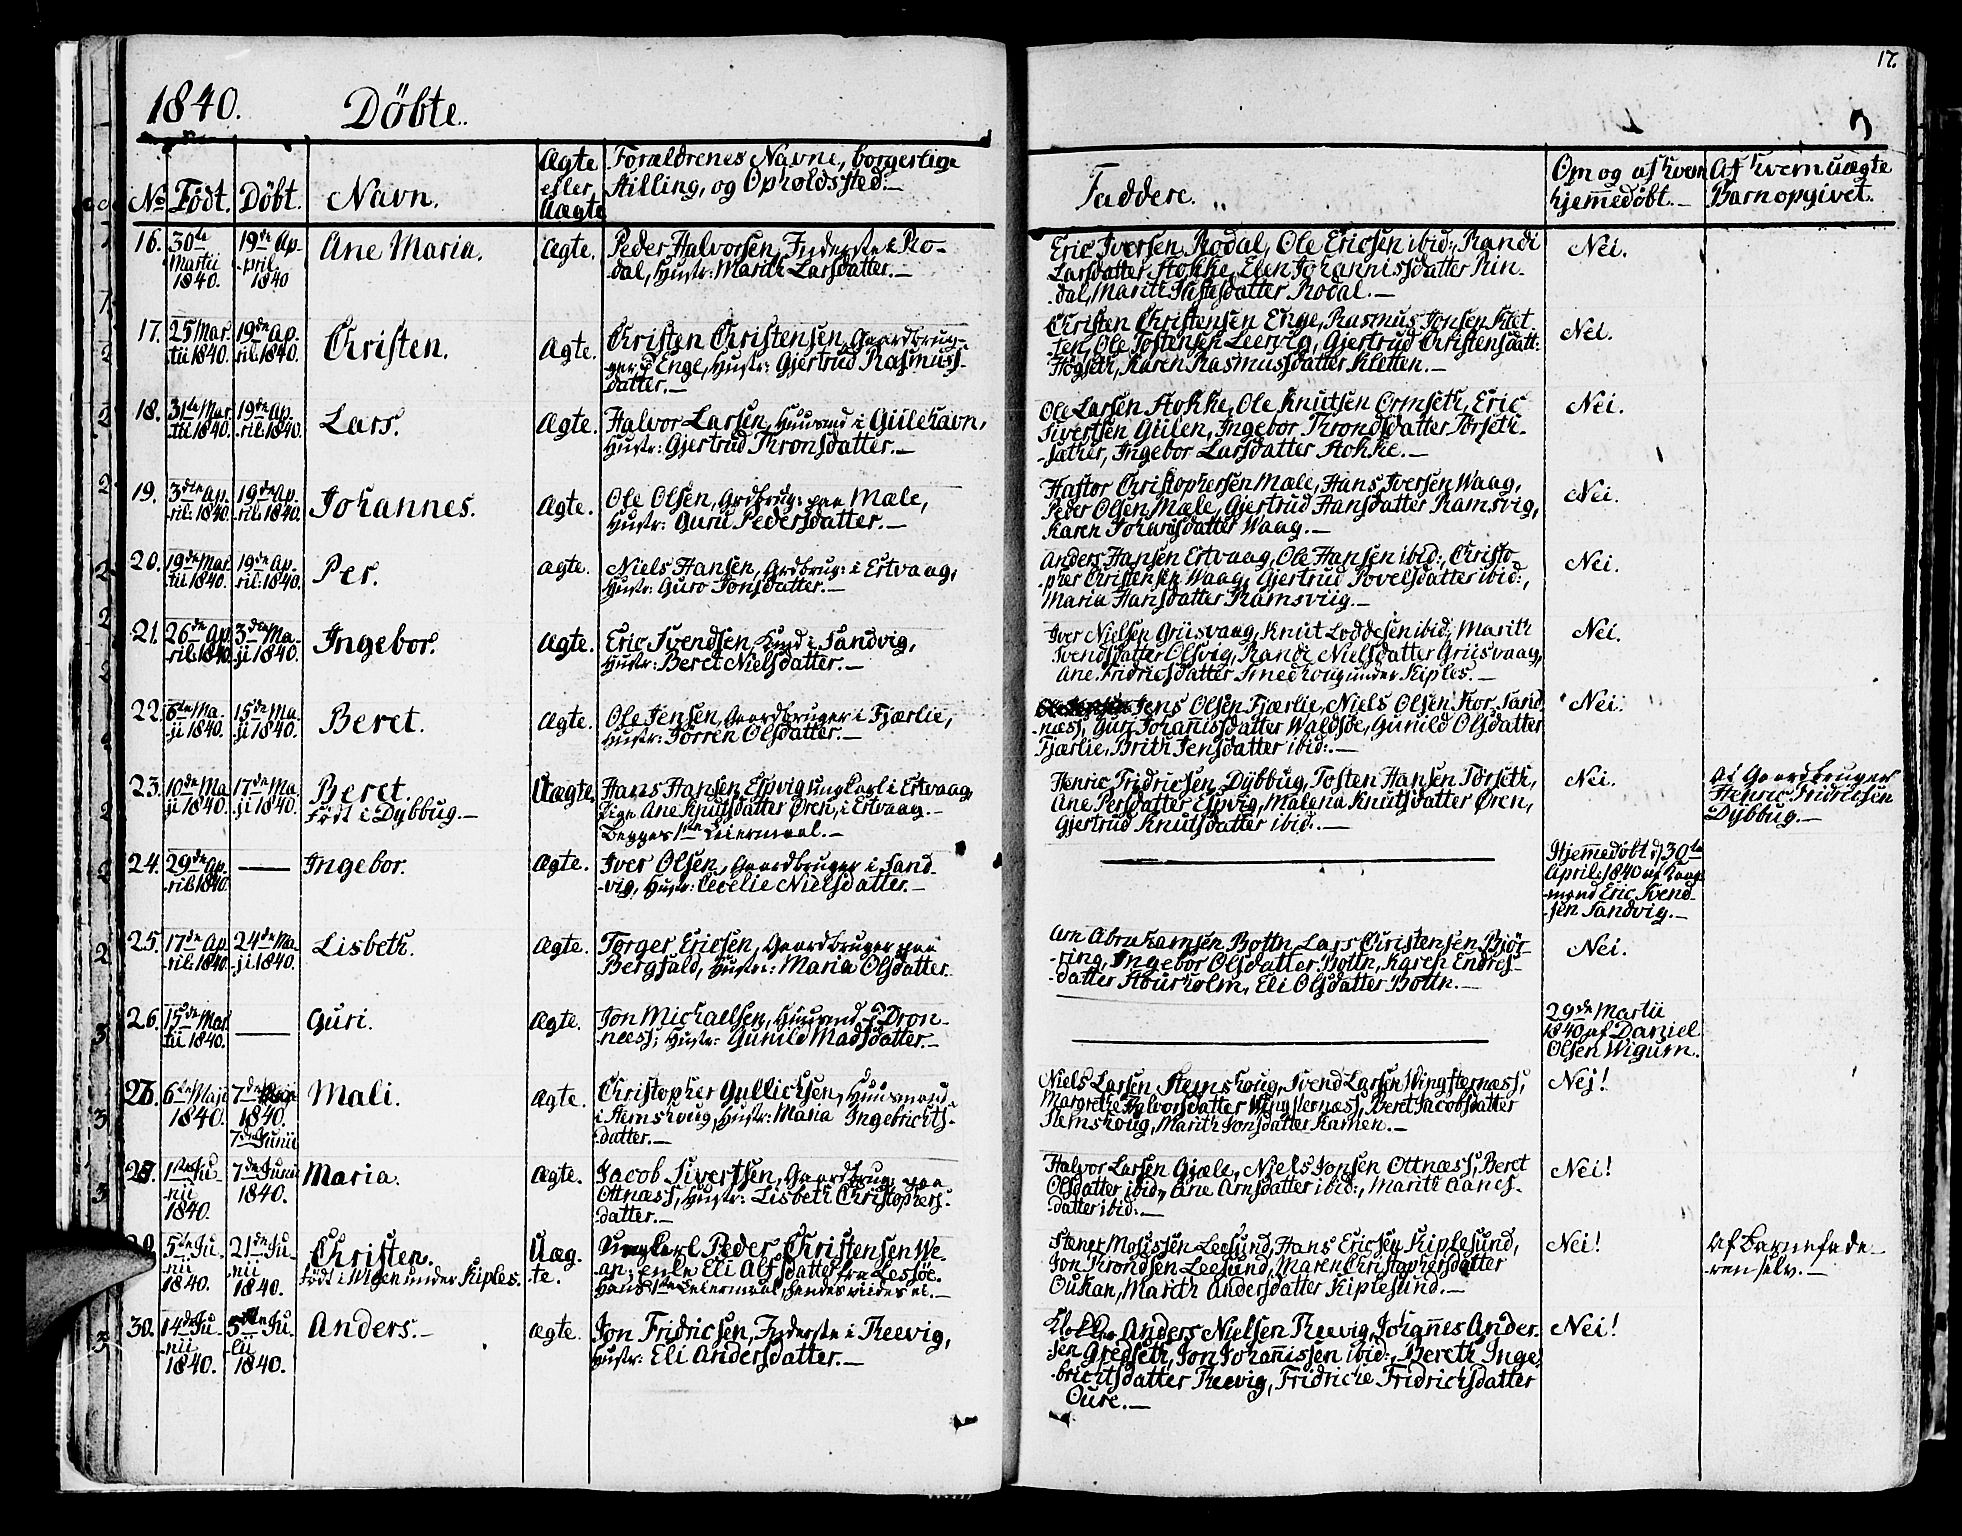 17.
1840. Döbte.
No Födt. Döbt. Navn. Ægte eller Uægte Forældrenes Navne, borgerlige Stilling, og Opholdssted.
Faddere. Om og af hvem hjemmedøbt. Af hvem uægte Barn opgivet.
16. 30te Martii 1840. 19de April 1840 Ane Maria. Ægte.
Peder Halvorsen, Inderste i Ro-
dal, Hustr: Marith Larsdatter.
Eric Iversen Rodal, Ole Ericsen ibid:, Randi
Larsdatter Stokke, Elen Johannisdatter Rin-
dal, Marith Rodal.
Nei.
17. 25 Martii 1840. 19de April. 1840. Christen. Ægte.
Christen Christensen, Gaardbrug-
ger p. Enge, Hustr: Gjertrud Rasmus-
datter.
Christen Christensen Enge, Rasmus Jonsen Klet
ten, Ole Tostensen Leervig, Gjertrud Christensdatt:
Högseth, Karen Rasmusdatter Kletten.
Nei.
18. 31te Martii 1840. 19de April. 1840. Lars. Ægte.
Halvor Larsen, Huusmd i Giilehavn,
Hustr: Gjertrud Thronsdatter.
Ole Larsen Stokke, Ole Knutsen Ormseth, Eric
Sivertsen Giilen, Ingebor Throndsdatter Torseth-
sæther, Ingebor Larsdatter Stokke.
Nei.
19. 3die April: 1840. 19de April. 1840. Johannes. Ægte.
Ole Olsen, Grdbrug: paa Mæle,
Hustr: Guru Pedersdatter.
Hastor Christophersen Mæle, Hans Iversen Waag,
Peder Olsen Mæle, Gjertrud Hansdatter Ramsvig,
Karen Waag.
Nei.
20. 19de Martii 1840. 19de April: 1840. Per. Ægte.
Niels Hansen, Grdbrug: i Ertvaag,
Hustr: Guro Jonsdatter.
Anders Hansen Ertvaag, Ole Hansen ibid:, Christo-
pher Christensen Waag, Gjertrud Povelsdatter ibid:,
Maria Hansdatter Ramsviig.
Nei.
21. 26de April. 1840. 3die Maji 1840. Ingebor. Ægte.
Eric Svendsen, i Sandvig,
Hustr: Beret Nielsdatter.
Iver Nielsen Griisvaag, Knut Loddesen ibid:, Marith
Svendsdatter Olsvig, Randi Nielsdatter Griisvaag,
Ane Fridricsdatter Smedhoug under Kiples.
Nei.
22. 6te Maji 1840. 15de Maji 1840. Beret. Ægte.
Ole Jensen, Gaardbruger i Fjærlie,
Hustr: Torren Olsdatter.
Jens Olsen Fjærlie, Niels Olsen Stor Sand
næs, Guri Johannisdatter Waldsöe, Gunild Olsdatter
Fjærlie, Brith Jensdatter ibid:.
Nei.
23. 10de Maji 1840. 17de Maji 1840. Beret. födt i Dybbug. Uægte.
Hans Hansen Espvig ungkarl i Ertvaag,
Pige Ane Knutsdatter Øren, i Ertvaag.
Begges 1ste Leiermaal.
Henric Fridricsen Dybbug, Tosten Hansen Torseth,
Ane Persdatter Espvig, Malena Knutsdatter Øren,
Gjertrud Knutsdatter ibid:.
Nei.
Af Gaardbruger
Henric Fridricsen
Dybbug.
24. 29de April. 1840. Ingebor. Ægte.
Iver Olsen, Gaardbruger i Sand
vig, Hustr: Cecelie Nielsdatter.
Hjemmedöbt d. 30te
April: 1840 af
mand Eric Svend
sen Sandvig.
25. 17de April. 1840. 24de Maji 1840. Lisbeth. Ægte.
Torger Ericsen, Gaardbruger paa
Bergfald, Hustr: Maria Olsdatter.
Arn Abrahamsen Bottn, Lars Christensen Björ-
ring, Ingebor Olsdatter Bottn, Karen Endres-
datter Stourholm, Eli Olsdatter Bottn.
Nei.
26. 15de Martii 1840. Guri. Ægte.
Jon Michaelsen, Huusmd p. Dron-
næss, Hustr: Gunild Madsdatter.
29de Martii
1840 af Daniel
Olsen Wigum.
27. 6te Maji 1840. 7de 1840. 7de Junii Mali. Ægte.
Christopher Gullichsen, Huusmand
i Stemshoug, Hustr: Maria Ingebrichts-
datter.
Niels Larsen Stemshoug, Svend Larsen Wingsternæss,
Margrethe Halvorsdatter Wingsternæss, Beret Jacobsdatter
Stemshoug, Marith Jonsdatter Kamen.
Nej!
1ste Junii 1840. 7de Junii 1840. Maria. Ægte.
Jacob Sivertsen, Gaardbrug. paa
Ottnæss, Hustr: Lisbeth Christophers-
datter.
Halvor Larsen Gjæle, Niels Jonsen Ottnæss, Beret
Olsdatter ibid:, Ane Arnsdatter ibid:, Marith Aanes-
datter ibid:.
Nei!
5te Junii 1840. 21de Junii 1840. Christen. födt i Wigen under Kiples. Uægte.
Ungkarl Peder Christensen We-
an, enke Eli Alfsdatter fra Lessøe.
Hans 1ste Leiermaal, hendes viides ei.
Stener Mosissen Leesund, Hans Ericsen Kiplesund,
Jon Krondsen Leesund, Maren Christophersdatter
Oukan, Marith Andersdatter Kiplesund.
Nei!
Af Barnefade-
ren selv.
30. 14de Junii 1840. 5te Julii 1840. Anders. Ægte.
Jon Fridricsen, Inderste i Reevig,
Hustr: Eli Andersdatter.
Anders Nielsen Reevig, Johannes Ander-
sen Gredseth, Jon Johannissen ibid:, Bereth Inge
brichtsdatter Reevig, Fridriche Fridrichsdatter
Oure.
Nei!